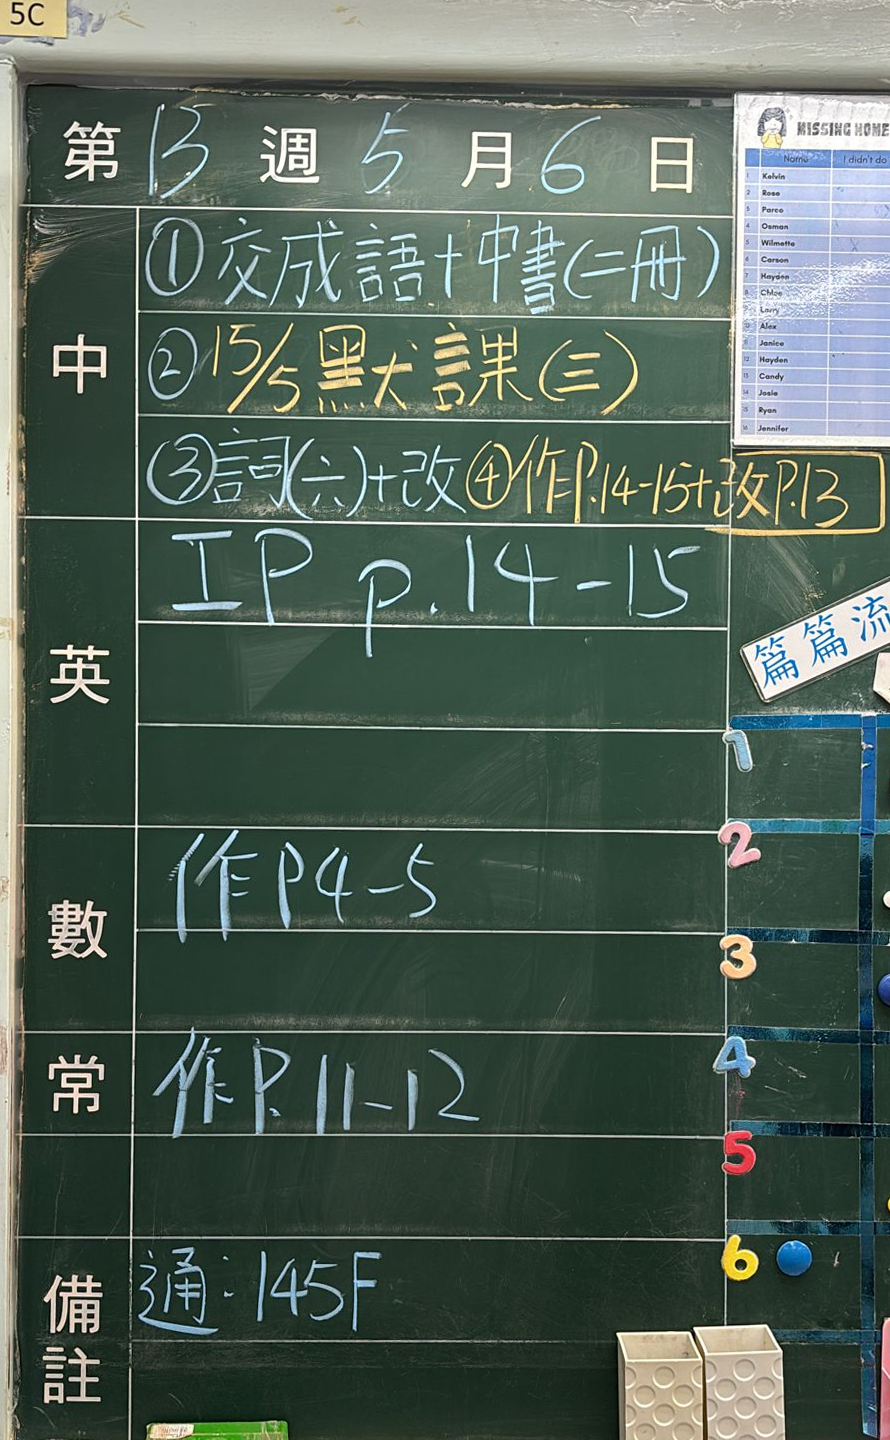 5C
第 13 週 5 月 6 日
中
①交成語+中書(二冊)
②15/5 默書課(三)
③詞(六)+改 ④作P.14-15+改P.13
英
IP p.14-15
數
作P4-5
常
作P.11-12
備註
通:145F
MISSING HOME
Name I didn't do
1 Kelvin
2 Rose
3 Parco
4 Osman
5 Wilmette
6 Carson
7 Hayden
8 Chloe
9 Larry
10 Alex
11 Janice
12 Hayden
13 Candy
14 Josie
15 Ryan
16 Jennifer
篇篇流
1
2
3
4
5
6